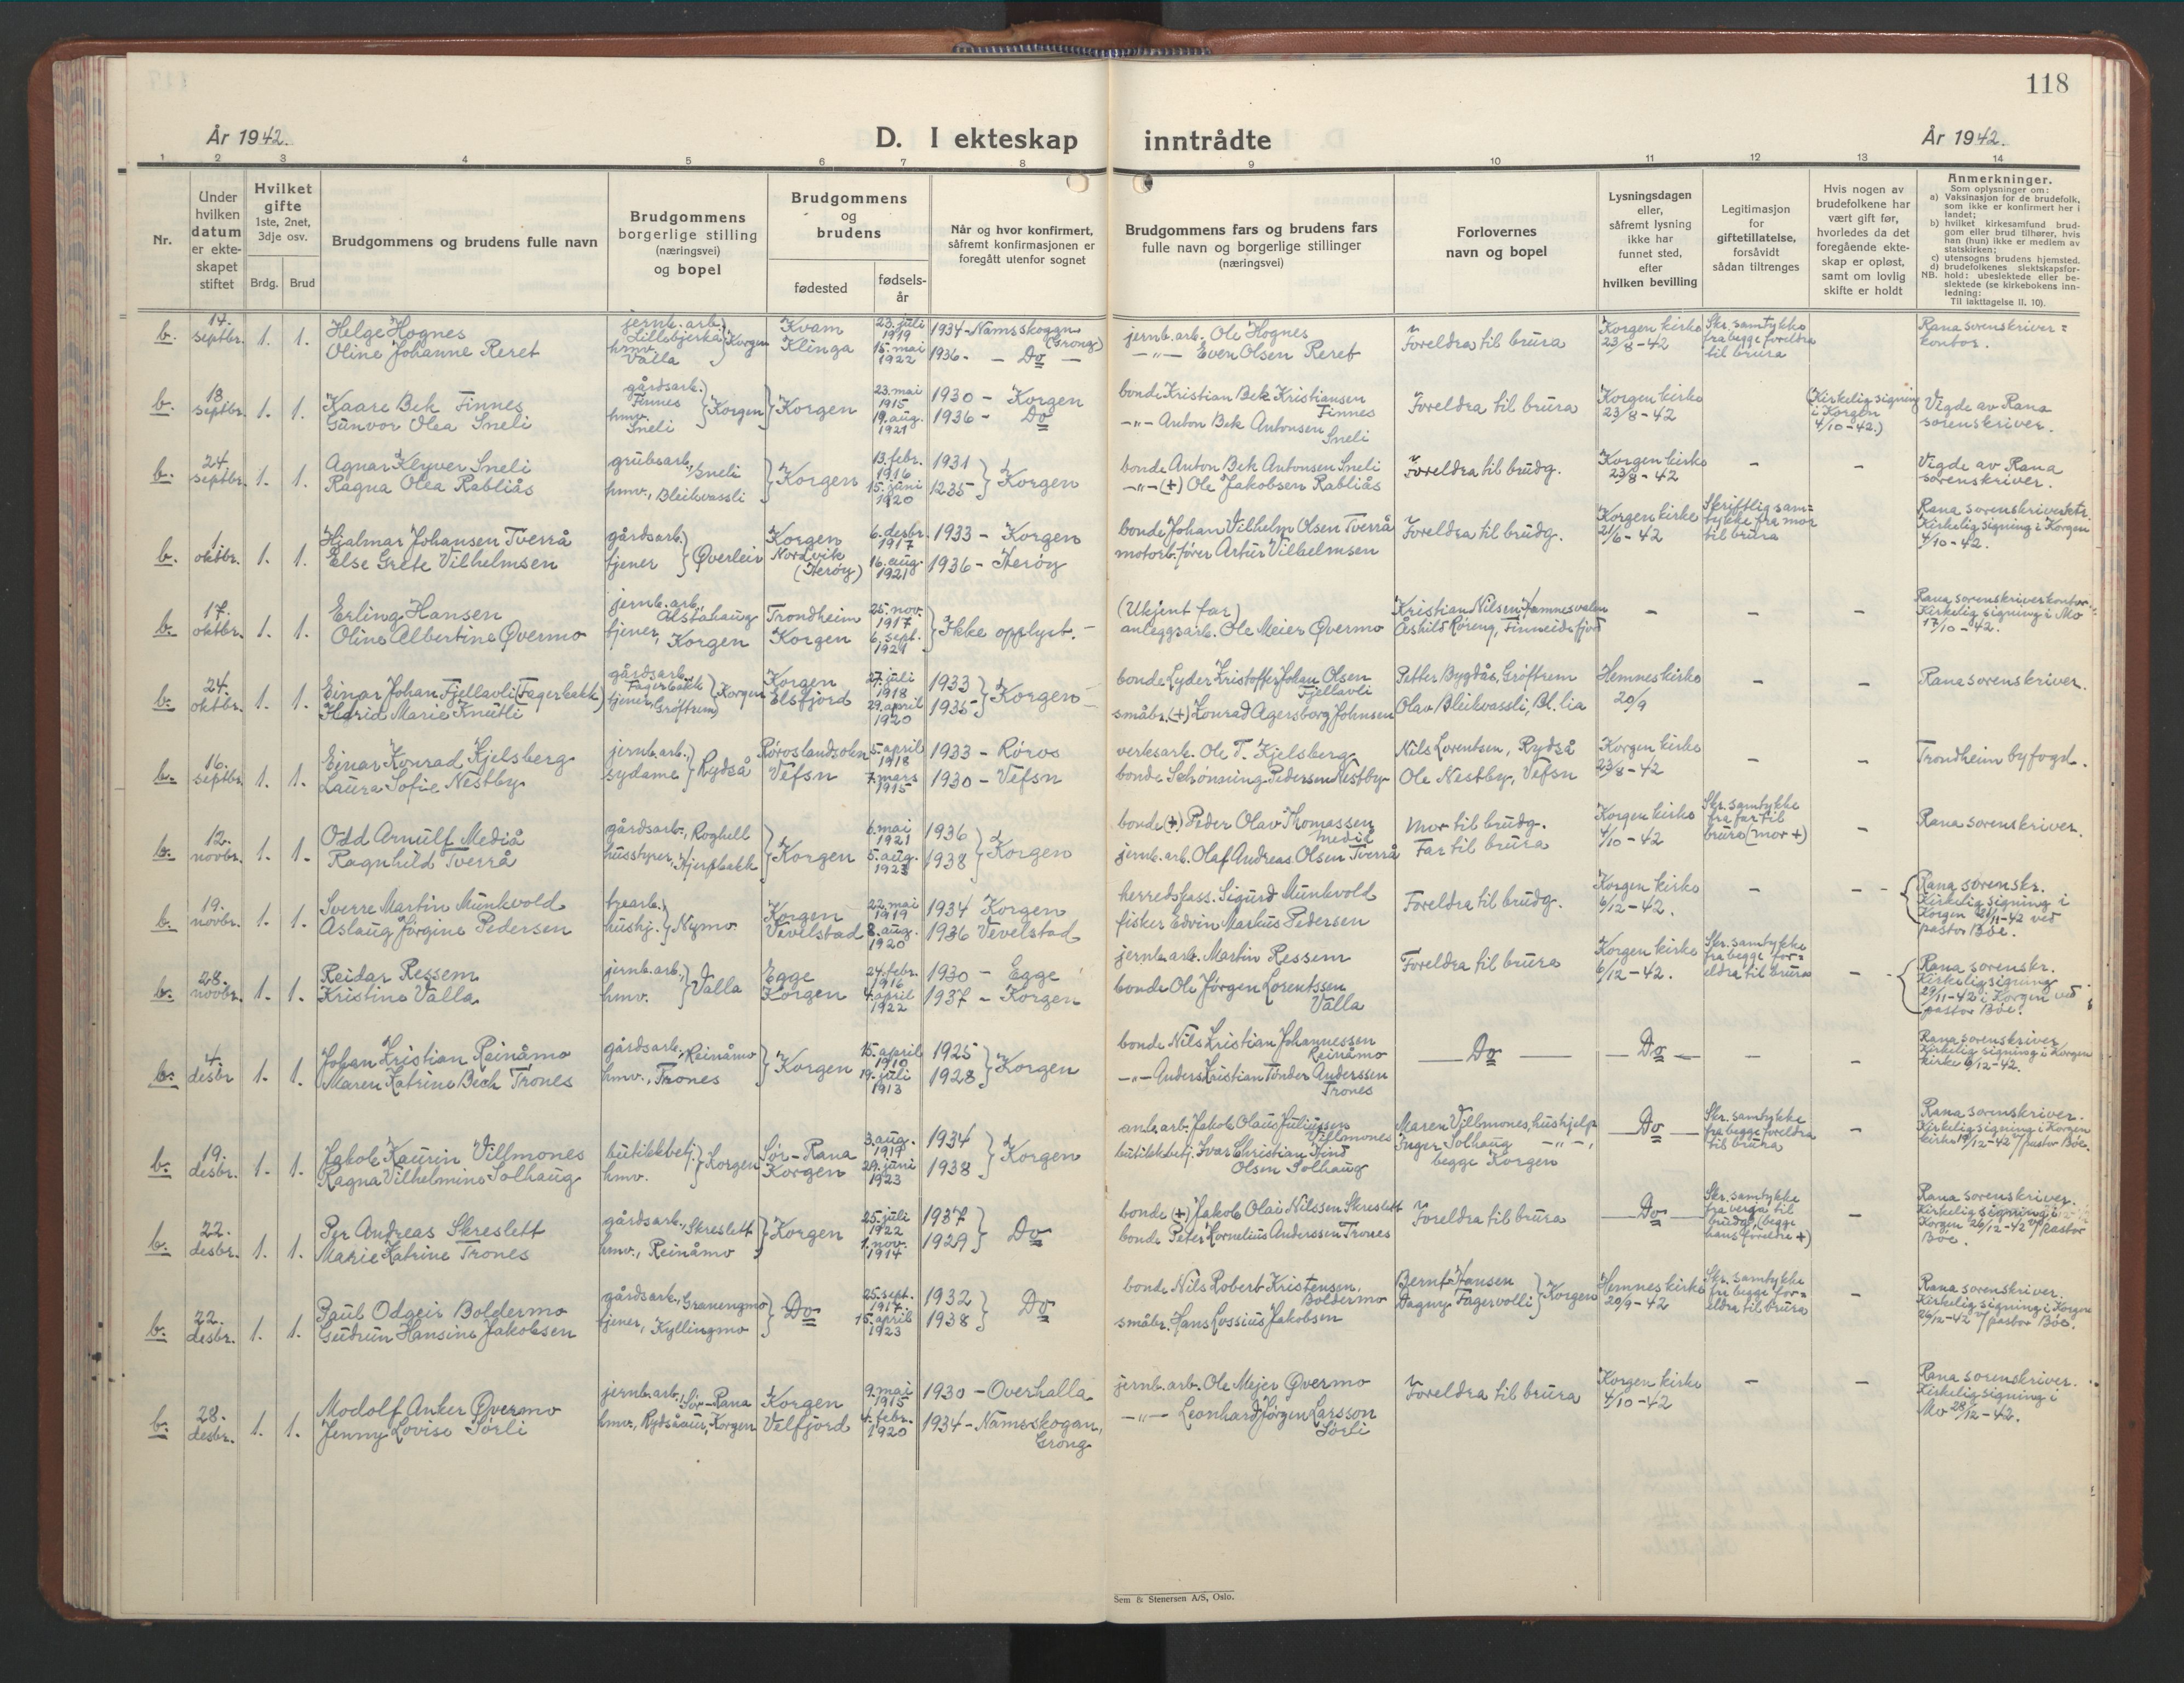 118
År 1942.
D. I ekteskap inntrådte
År 1942.
1 2 3 4 5 6 7 8 9 10 11 12 13 14
Nr.
Under hvilken datum er ekte-skapet stiftet
Hvilket gifte 1ste, 2net, 3dje osv.
Brdg. Brud
Brudgommens og brudens fulle navn
Brudgommens borgerlige stilling (næringsvei) og bopel
Brudgommens og brudens
fødested
fødsels-år
Når og hvor konfirmert, såfremt konfirmasjonen er foregått utenfor sognet
Brudgommens fars og brudens fars fulle navn og borgerlige stillinger (næringsvei)
Forlovernes navn og bopel
Lysningsdagen eller, såfremt lysning ikke har funnet sted, efter hvilken bevilling
Legitimasjon for giftetillatelse, forsåvidt sådan tiltrenges
Hvis nogen av brudefolkene har vært gift før, hvorledes da det foregående ekte-skap er opløst, samt om lovlig skifte er holdt
Anmerkninger.
Som oplysninger om:
a) Vaksinasjon for de brudefolk, som ikke er konfirmert her i landet;
b) hvilket kirkesamfund brud-gom eller brud tilhører, hvis han (hun) ikke er medlem av statskirken;
c) utensogns brudens hjemsted.
d) brudefolkenes slektskapsfor-hold: ubeslektede eller be-slektede (se kirkebokens inn-ledning:
NB. Til iakttagelse II. 10).
b. 14. septbr. 1. 1. Helge Hognes jernb.arb. Lillebjerka Korgen Kvam 23. juli 1919 1934 - Namsskogan (Grong) jernb.arb. Ole Hognes Foreldra til brura Korgen kirke 23/8-42 Skr. samtykke fra begge foreldra til brura Rana sorenskriver=kontor.
Oline Johanne Reret hmv. Valla Klinga 15. mai 1922 1936 - Do - -"- Even Olsen Reret
b. 18 septbr. 1. 1. Kaare Bek Finnes gårdsarb. Finnes Korgen Korgen 23. mai 1915 1930 - Korgen bonde Kristian Bek Kristiansen Finnes Foreldra til brura Korgen kirke 23/8-42 (Kirkelig signing i Korgen 4/10-42.) Vigde av Rana sorenskriver.
Gunvor Olea Sneli hmv. Sneli 19. aug. 1921 1936 - Do -"- Anton Bek Antonsen Sneli
b. 24. septbr. 1. 1. Agnar Klyver Sneli grubearb., Sneli Korgen 13. febr. 1916 1931 Korgen bonde Anton Bek Antonsen Sneli Foreldra til brudg. Korgen kirke 23/8-42 - - Vigde av Rana sorenskriver.
Ragna Olea Rabliås hmv., Bleikvassli 15. juni 1920 1235 -"- (+) Ole Jakobsen Rabliås
b. 1. oktbr. 1. 1. Hjalmar Johansen Tverrå gårdsarb. Øverleir Korgen 6. desbr. 1917 1933 - Korgen bonde Johan Vilhelm Olsen Tverrå Foreldra til brudg. Korgen kirke 21/6-42 Skriftlig sam=tykke fra mor til brura Rana sorenskriverktr. Kirkelig signing i Korgen 4/10-42.
Else Grete Vilhelmsen tjener Nordvik (Herøy) 16. aug. 1921 1936 - Herøy motorb.fører Artur Vilhelmsen
b. 17. oktbr. 1. 1. Erling Hansen jernb.arb., Alstahaug Trondheim 25. nov. 1917 Ikke opplyst. - (Ukjent far) Kristian Nilsen, Hamnesvalen - - - Rana sorenskriverkontor. Kirkelig signing i Mo 17/10-42.
Oline Albertine Øvermo tjener, Korgen Korgen 6. sept. 1921 anleggsarb. Ole Meier Øvermo Åshild Røreng, Finneidfjord
b. 24. oktbr. 1. 1. Einar Johan Fjellavli (Fagerbakk) gårdsarb. Fagerbakk Korgen Korgen 27. juli 1918 1933 Korgen - bonde Lyder Kristoffer Johan Olsen Fjellavli Petter Bygdås, Grøftrem Hemnes kirke 20/9 - - Rana sorenskriver.
Hedrid Marie Knutli tjener, Grøftrem Elsfjord 29. april 1920 1935 småbr. (+) Konrad Agersborg Johnsen Olav Bleikvassli, Bl. lia
b. 16. septbr. 1. 1. Einar Konrad Kjelsberg jernb.arb. Rydså Røros landsokn 5. april 1918 1933 - Røros verksarb. Ole T. Kjelsberg Nils Lorentsen, Rydså Korgen kirke 23/8-42 - - Trondheim byfogd.
Laura Sofie Nestby sydame Vefsn 7. mars 1915 1930 - Vefsn bonde Schønning Pedersen Nestby Ole Nestby, Vefsn
b. 12. novbr. 1. 1. Odd Arnulf Mediå gårdsarb., Roghell Korgen 6. mai 1921 1936 Korgen bonde (+) Peder Olav Thomassen Mediå Mor til brudg. Korgen kirke 4/10-42 Skr. samtykke fra far til brura (mor +) - Rana sorenskriver.
Ragnhild Tverrå husstyrer, Hjerpbakk 5. aug. 1923 1938 jernb.arb. Olaf Andreas Olsen Tverrå Far til brura
b. 19. novbr. 1. 1. Sverre Martin Munkvold trearb. Nymo Korgen 22. mai 1919 1934 Korgen herredskass. Sigurd Munkvold Foreldra til brudg. Korgen kirke 6/12-42. - - Rana sorenskr. Kirkelig signing i Korgen 21/11-42 ved pastor Bøe.
Aslaug Jørgine Pedersen hushj. Vevelstad 8. aug. 1920 1936 Vevelstad fisker Edvin Markus Pedersen
b. 28. novbr. 1. 1. Reidar Ressem jernb.arb., Valla Egge 24. febr. 1916 1930 - Egge jernb.arb. Martin Ressem Foreldra til brura Korgen kirke 6/12-42. Skr. samtykke fra begge for=eldra til brura - Rana sorenskr. Kirkelig signing 29/11-42 i Korgen ved pastor Bøe.
Kristine Valla hmv. Korgen 4. april 1922 1937 - Korgen bonde Ole Jørgen Lorentssen Valla
b. 4. desbr 1. 1. Johan Kristian Reinåmo gårdsarb., Reinåmo Korgen 15. april 1910 1925 Korgen bonde Nils Kristian Johannessen Reinåmo - Do - - Do - - - Rana sorenskriver Kirkelig signing i Korgen kirke 6/12-42.
Maren Katrine Bech Trones hmv., Trones 19. juli 1913 1928 -"- Anders Kristian Tønder Anderssen Trones
b. 19. desbr. 1. 1. Jakob Kaurin Villmones butikkbetj. Korgen Sør-Rana 3. aug. 1919 1934 Korgen anl.arb. Jakob Olaus Juliussen Villmones Maren Villmones, hushjelp - Do - Skr. samtykke fra begge foreldra til brura - Rana sorenskriver. Kirkelig signing i Korgen kirke 19/12-42 v/ pastor Bøe.
Ragna Vilhelmine Solhaug hmv. Korgen 29. juni 1923 1938 butikkbetj. Ivar Christian Lind Olsen Solhaug Inger Solhaug -"-, begge Korgen
b. 22. desbr. 1. 1. Per Andreas Skreslett gårdsarb., Skreslett Korgen 25. juli 1922 1937 Do bonde (+) Jakob Olai Nilssen Skreslett Foreldra til brura - Do - Skr. samtykke fra verge til brudg. (begge hans foreldre +) - Rana sorenskriver. Kirkelig signing i Korgen 26/12-42 v/ pastor Bøe.
Marie Katrine Trones hmv., Reinåmo 1. nov. 1914 1929 bonde Peter Kornelius Anderssen Trones
b. 22. desbr. 1. 1. Paul Odgeir Boldermo gårdsarb., Granengmo Do 25. sept. 1917. 1932 Do bonde Nils Robert Kristensen Boldermo Bernt Hansen Korgen Hemnes kirke 20/9-42 Skr. samtykke fra begge for=eldra til brura - Rana sorenskriver. Kirkelig signing i Korgen 26/12-42 v/ pastor Bøe.
Gudrun Hansine Jakobsen tjener, Kyllingmo 15. april 1923 1938 småbr. Hans Lossius Jakobsen Dagny Fagervolli
b. 28. desbr. 1. 1. Modolf Anker Øvermo jernb.arb., Sør-Rana Korgen 9. mai 1915 1930 - Overhalla jernb.arb. Ole Mejer Øvermo Foreldra til brura Korgen kirke 4/10-42 - - Rana sorenskriver. Kirkelig signing i Mo 28/12-42.
Jenny Lovise Sørli hmv., Rydsåaur, Korgen Velfjord 4. febr. 1920 1934 - Namsskogan, Grong -"- Leonhard Jørgen Larsson Sørli
Sem & Stenersen A/S, Oslo.